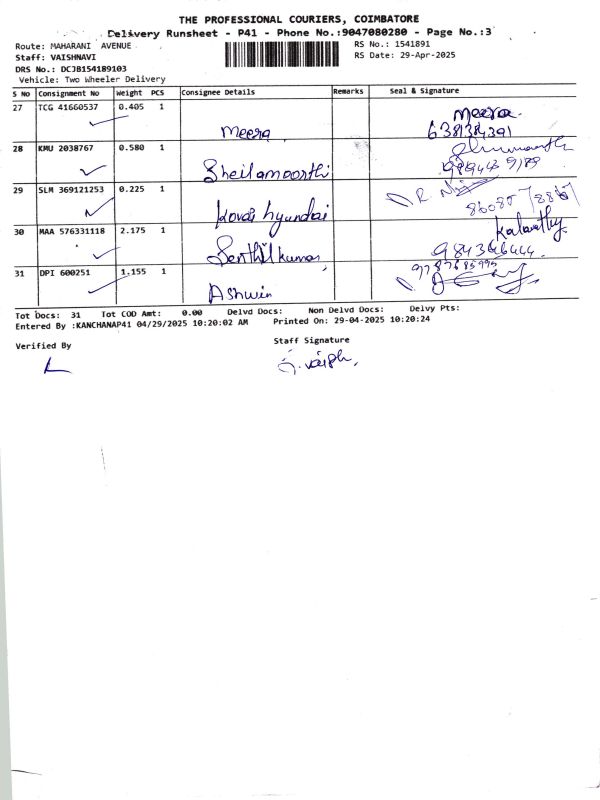 THE PROFESSIONAL COURIERS, COIMBATORE
Delivery Runsheet - P41 - Phone No.:9047080280 - Page No.:3
Route: MAHARANI AVENUE
RS No.: 1541891
Staff: VAISHNAVI
RS Date: 29-Apr-2025
DRS No.: DCJB154189103
Vehicle: Two Wheeler Delivery
S No Consignment No Weight PCS Consignee Details Remarks Seal & Signature
27 TCG 41660537 0.405 1 Meera
Meera
638134391
28 KMU 2038767 0.580 1
Sheilamoorthi
29 SLM 369121253 0.225 1
Kovai hyundai
30 MAA 576331118 2.175 1 Kalavathy
Senthilkumar
31 DPI 600251 1.155 1 9787685995
Ashwin
Tot Docs: 31 Tot COD Amt: 0.00 Delvd Docs: Non Delvd Docs: Delvy Pts:
Entered By :KANCHANAP41 04/29/2025 10:20:02 AM Printed On: 29-04-2025 10:20:24
Verified By
Staff Signature